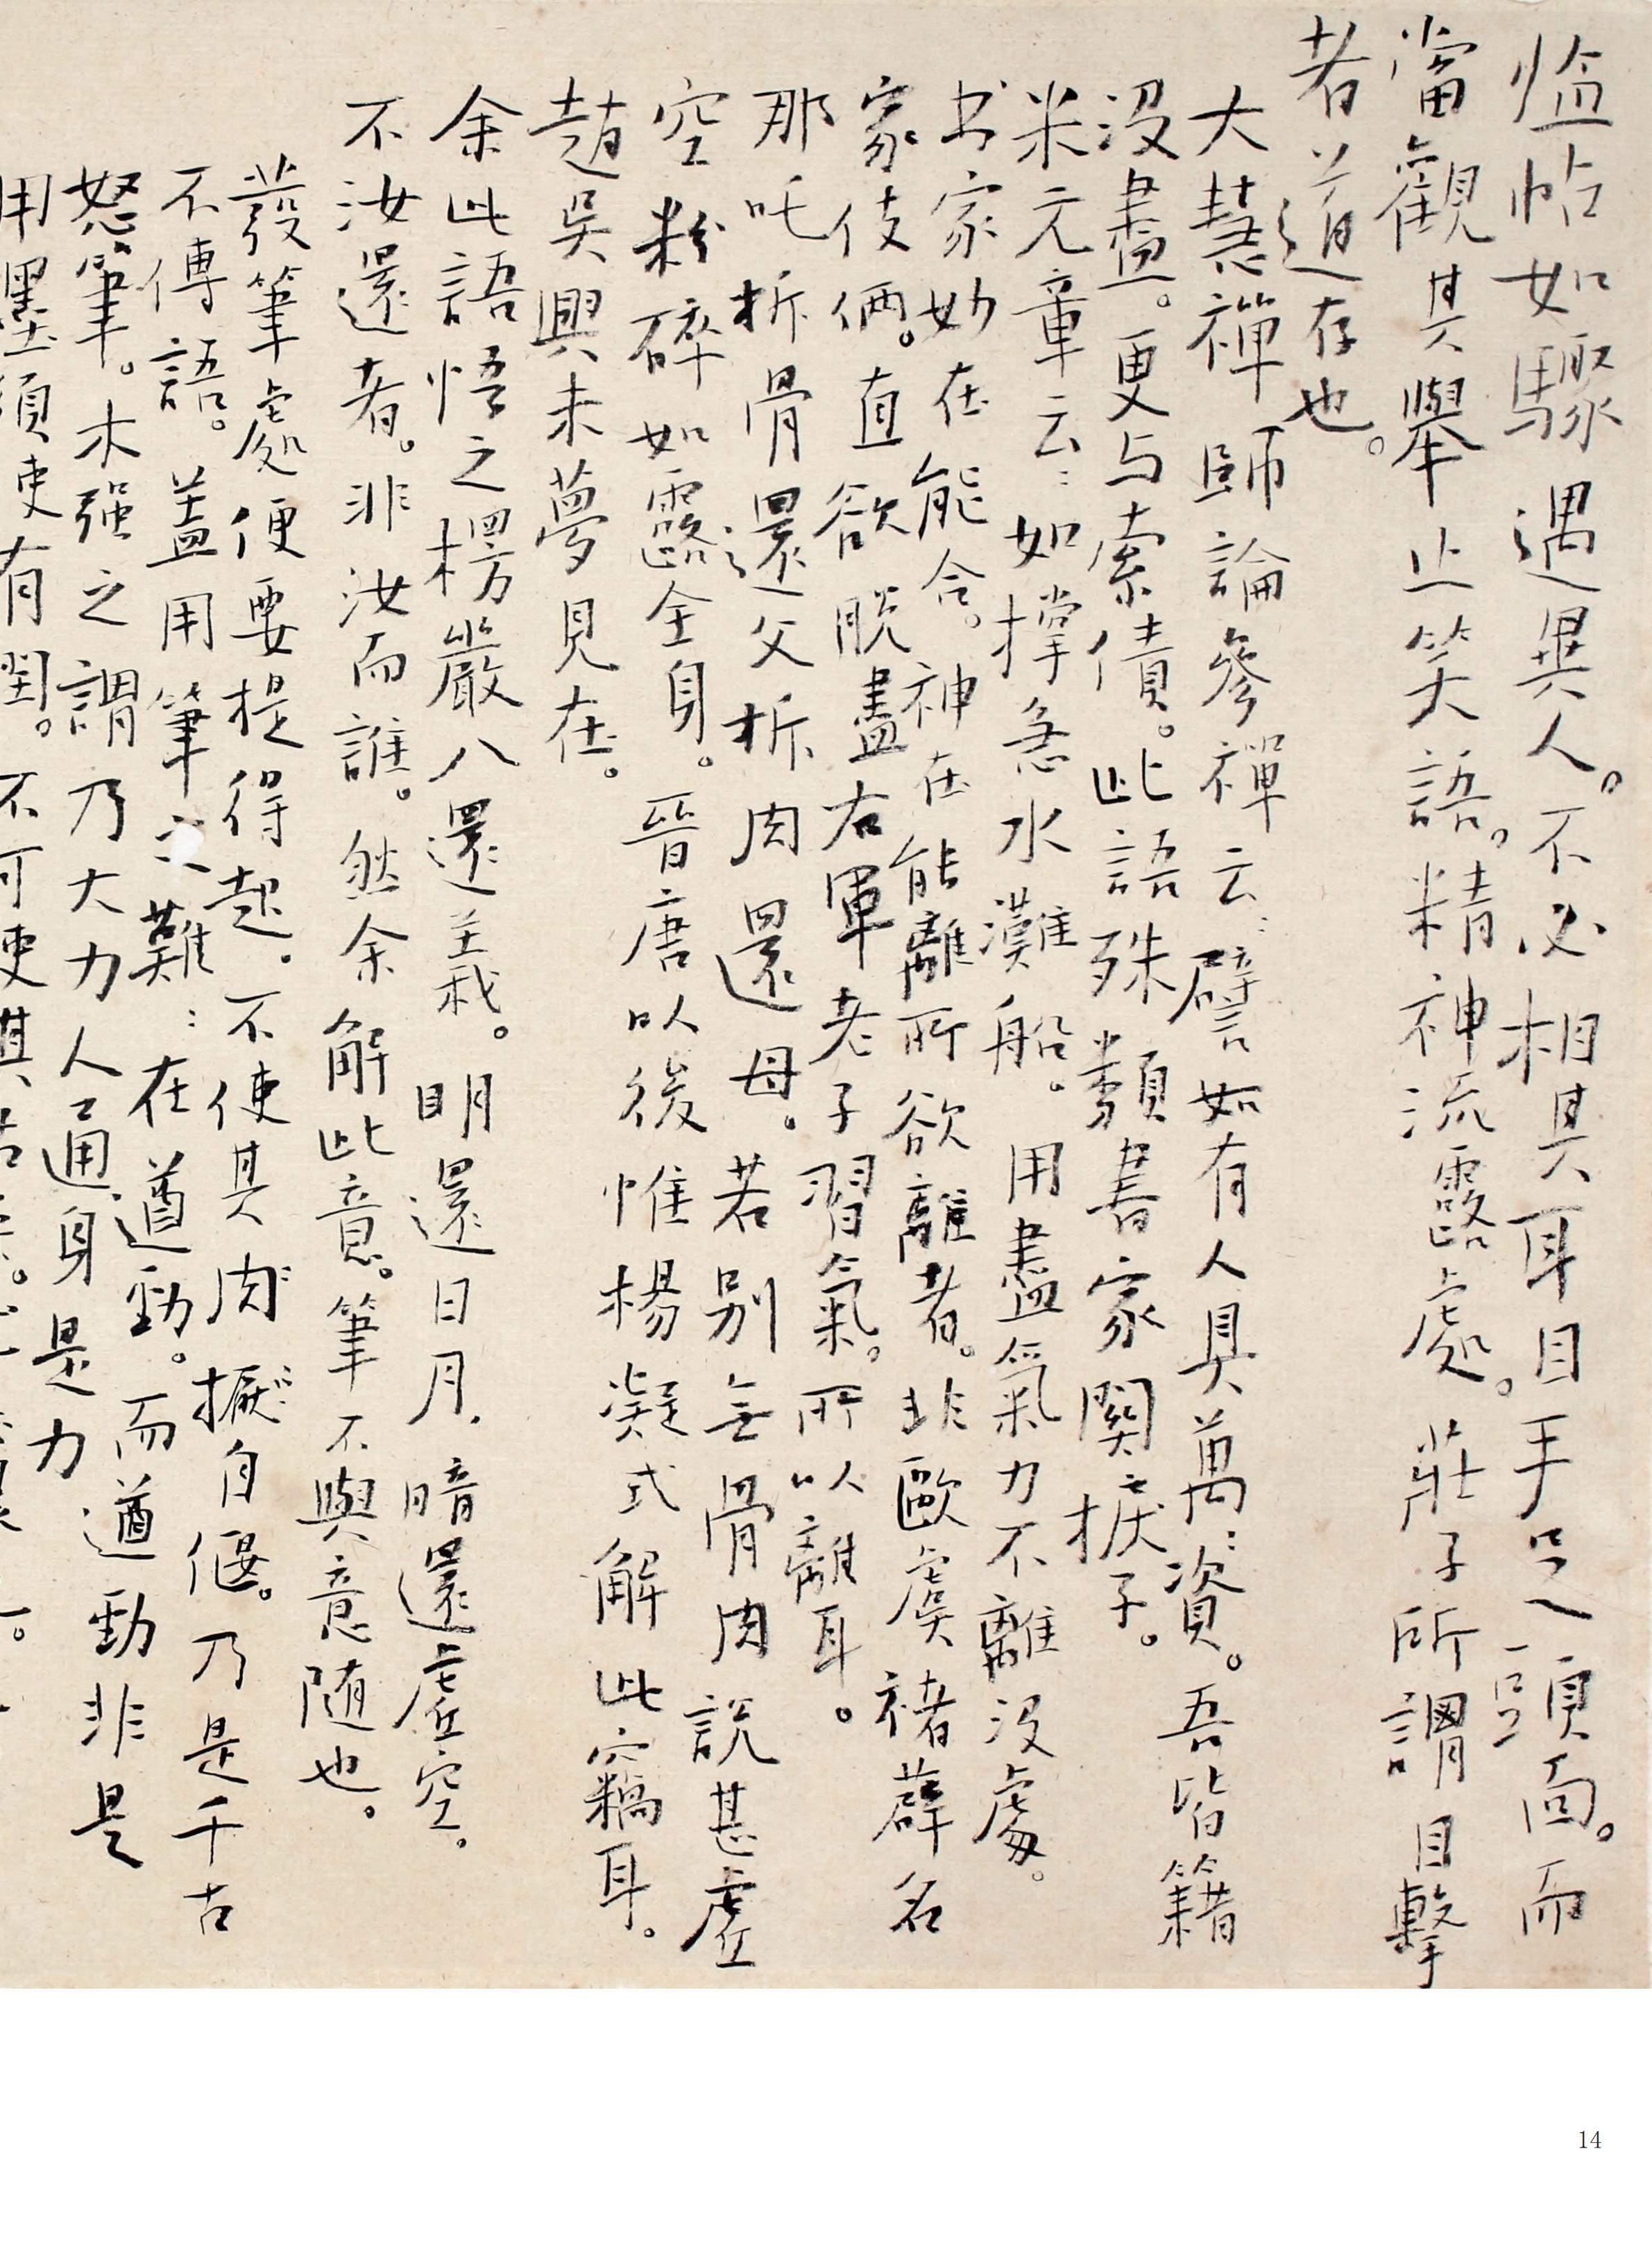 臨帖如驟遇異人。不必相其耳目手足頭面。而
當觀其舉止笑語。精神流露處。莊子所謂目擊
者道存也。
大慧禪師論參禪云:譬如有人具萬:資。吾皆籍
沒盡。更与索債。此語殊類書家関捩子。
米元章云:如撑急水灘船。用盡氣力不離沒處。
书家妙在能合。神在能離所欲離者。非歐虞褚薛名
家伎倆。直欲脫盡右軍老子習氣。所以離耳。
那吒拆骨還父拆肉還母。若别無骨肉說甚虛
空粉碎如露全身。晉唐以後惟楊凝式解此竅耳。
趙吳興未夢見在。
余此語悟之楞嚴八還義。明還日月,暗還虛空。
不汝還者。非汝而誰。然余解此意。筆不與意随也。
發筆處便要提得起。不使其肉擫自偃。乃是千古
不傳語。蓋用筆之難:在遒勁。而遒勁非是
怒筆。木强之謂乃大力人通身是力
用墨須使有閏。不可使其